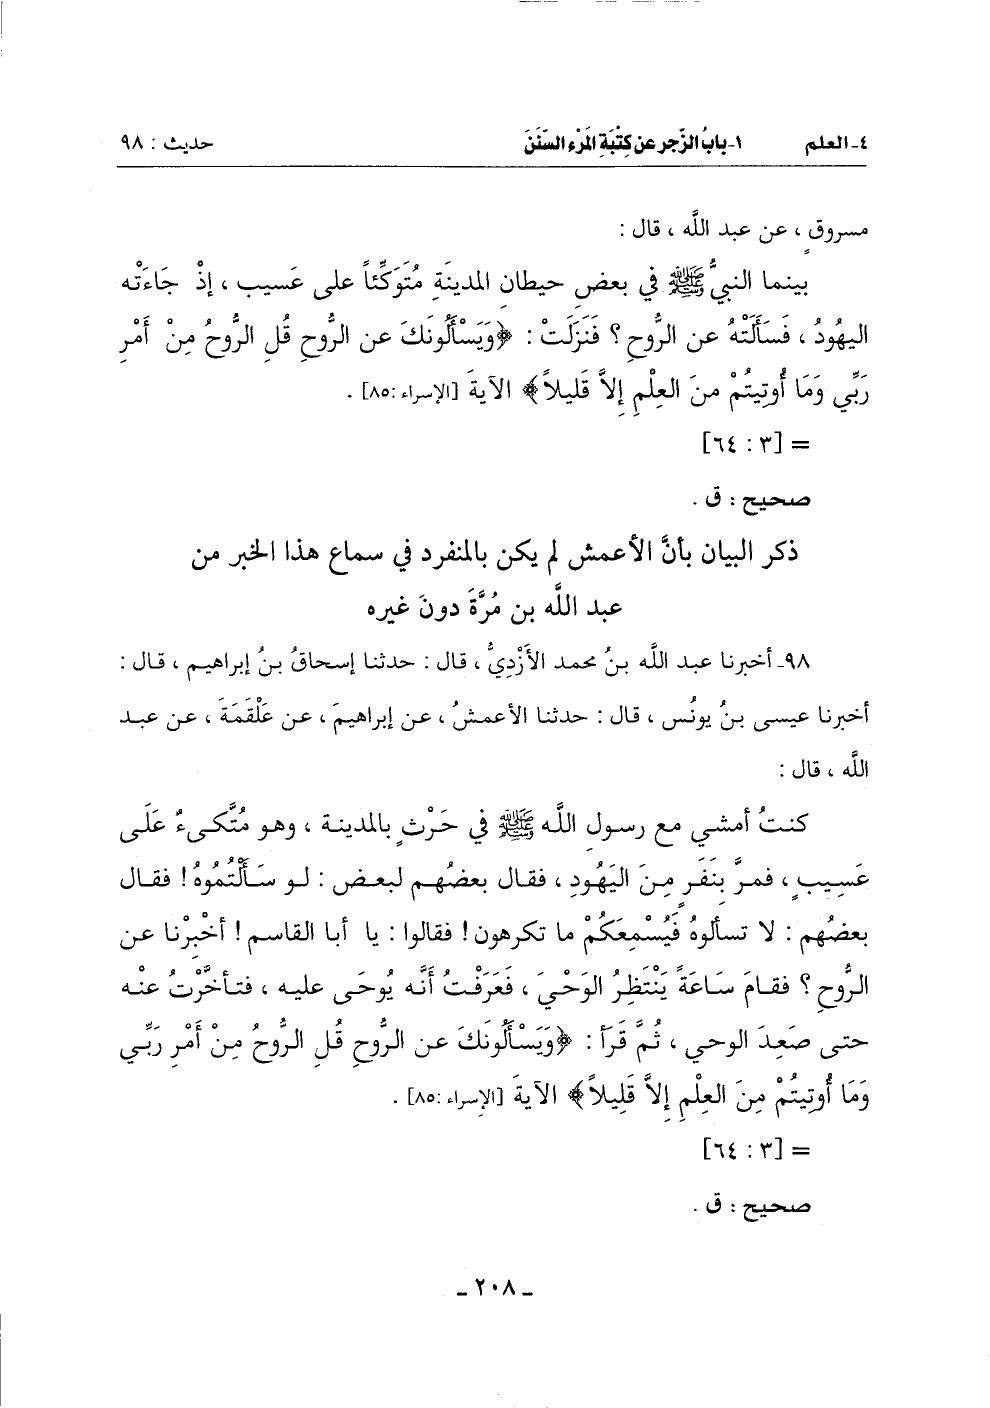 ٤ـ العلم ١- بابُ الزَّجر عن كِتْبَةِ المَرْءِ السُّنَنَ حديث : ٩٨
مسروقٍ ، عن عبد اللَّه ، قال :
بينما النبيُّ ﷺ في بعضِ حيطانِ المدينَةِ مُتَوَكِّئاً على عَسيب ، إذْ جَاءَتْه
اليهُودُ ، فَسَأَلَتْهُ عن الرُّوحِ ؟ فَنَزَلَتْ : ﴿وَيَسْأَلُونَكَ عن الرُّوحِ قُلِ الرُّوحُ مِنْ أَمْرِ
رَبِّي وَمَا أُوتِيتُمْ منَ العِلْمِ إلاَّ قَليلاً﴾ الآيةَ [الإسراء :٨٥] .
= [٣ : ٦٤]
صحيح : ق .
ذكر البيان بأنَّ الأعمش لم يكن بالمنفرد في سماع هذا الخبر من
عبد اللَّه بن مُرَّةَ دونَ غيره
٩٨ـ أخبرنا عبد اللَّه بنُ محمد الأَزْديُّ ، قال : حدثنا إسحاقُ بنُ إبراهيم ، قال :
أخبرنا عيسى بنُ يونُس ، قال : حدثنا الأعمشُ ، عن إبراهيمَ ، عن عَلْقَمَةَ ، عن عبد
اللَّه ، قال :
كنتُ أمشي مع رسولِ اللَّه ﷺ في حَرْثٍ بالمدينة ، وهو مُتَّكىءٌ عَلَى
عَسِيبٍ ، فمرَّ بِنَفَرٍ مِنَ اليَهُودِ ، فقال بعضُهم لبعض : لو سَأَلْتُمُوهُ! فقال
بعضُهم : لا تسألوهُ فَيُسْمِعَكُمْ ما تكرهون! فقالوا : يا أبا القاسم! أخْبِرْنا عن
الرُّوحِ ؟ فقامَ سَاعَةً يَنْتَظِرُ الوَحْيَ ، فَعَرَفْتُ أنَّه يُوحَى عليه ، فتأخَّرْتُ عنْه
حتى صَعِدَ الوحي ، ثُمَّ قَرَأَ : ﴿وَيَسْأَلُونَكَ عن الرُّوحِ قُلِ الرُّوحُ مِنْ أَمْرِ رَبِّي
وَمَا أُوتِيتُمْ مِنَ العِلْمِ إلاَّ قَلِيلاً﴾ الآيةَ [الإسراء :٨٥] .
= [٣ : ٦٤]
صحيح : ق .
ـ ٢٠٨ ـ